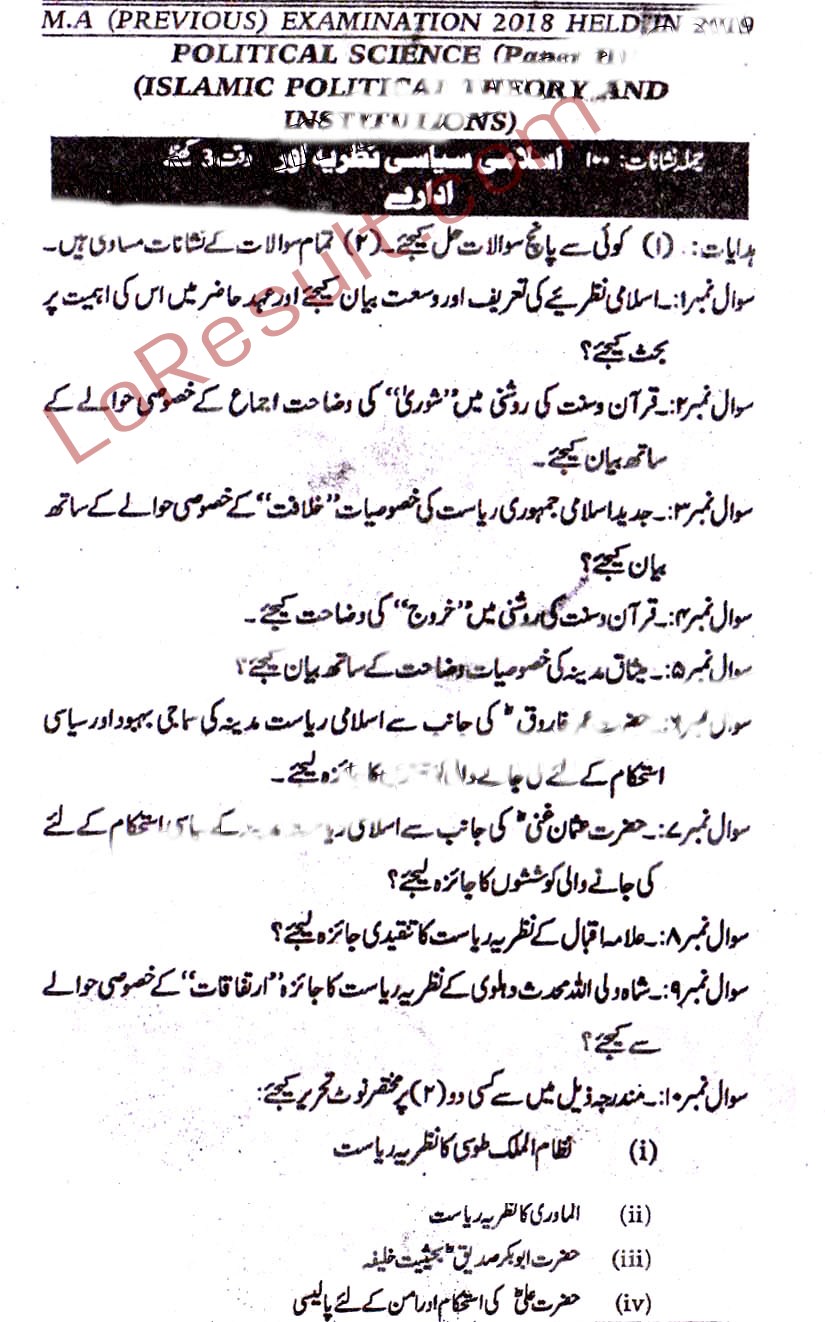 M.A (PREVIOUS) EXAMINATION 2018 HELD IN 2019
POLITICAL SCIENCE (Paper
(ISLAMIC POLITICAL THEORY AND
INSTITUTIONS)
جملہ نشانات: ۱۰۰ اسلامی سیاسی نظریہ اور وقت 3 گھنٹے
ادارے
ہدایات: (۱) کوئی سے پانچ سوالات حل کیجئے۔ (۲) تمام سوالات کے نشانات مساوی ہیں۔
سوال نمبر۱:۔ اسلامی نظریئے کی تعریف اور وسعت بیان کیجئے اور عہد حاضر میں اس کی اہمیت پر
بحث کیجئے؟
سوال نمبر۲:۔ قرآن و سنت کی روشنی میں ”شوریٰ“ کی وضاحت اجماع کے خصوصی حوالے کے
ساتھ بیان کیجئے۔
سوال نمبر۳:۔ جدید اسلامی جمہوری ریاست کی خصوصیات ”خلافت“ کے خصوصی حوالے کے ساتھ
بیان کیجئے؟
سوال نمبر۴:۔ قرآن و سنت کی روشنی میں ”خروج“ کی وضاحت کیجئے۔
سوال نمبر۵:۔ میثاق مدینہ کی خصوصیات وضاحت کے ساتھ بیان کیجئے؟
سوال نمبر۶:۔ حضرت عمر فاروقؓ کی جانب سے اسلامی ریاست مدینہ کی سماجی بہبود اور سیاسی
استحکام کے لئے کی جانے والی کا جائزہ لیجئے۔
سوال نمبر۷:۔ حضرت عثمان غنیؓ کی جانب سے اسلامی ریاست مدینہ کے سیاسی استحکام کے لئے
کی جانے والی کوششوں کا جائزہ لیجئے؟
سوال نمبر۸:۔ علامہ اقبال کے نظریہ ریاست کا تنقیدی جائزہ لیجئے؟
سوال نمبر۹:۔ شاہ ولی اللہ محدث دہلوی کے نظریہ ریاست کا جائزہ ”ارتفاقات“ کے خصوصی حوالے
سے کیجئے؟
سوال نمبر۱۰:۔ مندرجہ ذیل میں سے کسی دو (۲) پر مختصر نوٹ تحریر کیجئے:
(i) نظام الملک طوسی کا نظریہ ریاست
(ii) الماوردی کا نظریہ ریاست
(iii) حضرت ابوبکر صدیقؓ بحیثیت خلیفہ
(iv) حضرت علیؓ کی استحکام اور امن کے لئے پالیسی
LoResult.com